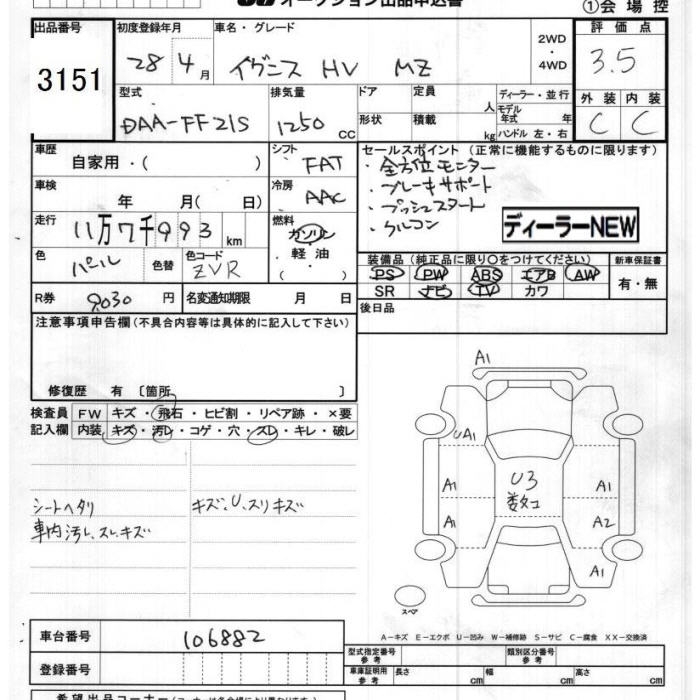 オークション出品申込書
①会場控
出品番号 初度登録年月 車名・グレード 2WD・4WD 評価点
3151 28 4月 イグニス HV MZ 3.5
型式 排気量 ドア 定員 人 ディーラー・並行 外装 内装
DAA-FF21S 1250 CC 形状 積載 kg モデル年式 年 ハンドル 左・右 C C
車歴 自家用・( ) シフト FAT セールスポイント (正常に機能するものに限ります)
・全方位モニター
車検 年 月(日) 冷房 AAC ・ブレーキサポート
・プッシュスタート
走行 11万7千993km 燃料 ガソリン ・クルコン ディーラーNEW
軽油
・( )
色 パール 色替 色コード ZVR 装備品 (純正品に限り○をつけてください) 新車保証書
PS PW ABS エアB AW 有・無
SR ナビ TV カワ
R券 9030円 名変通知期限 月 日 後日品
注意事項申告欄 (不具合内容等は具体的に記入して下さい)
修復歴 有 〔箇所 〕
検査員 FW キズ・飛石・ヒビ割・リペア跡・×要
記入欄 内装 キズ・汚レ・コゲ・穴・スレ・キレ・破レ
シートヘタリ キズ、U、スリキズ
車内汚レ、スレ、キズ
A1
UA1
U3
数ヶ
A1 A1
A1 A2
A1
スペア
A-キズ E-エクボ U-凹み W-補修跡 S-サビ C-腐食 XX-交換済
車台番号 106882
型式指定番号 参考 類別区分番号 参考
登録番号 車庫証明用 参考 長さ cm 幅 cm 高さ cm
希望出品コーナー